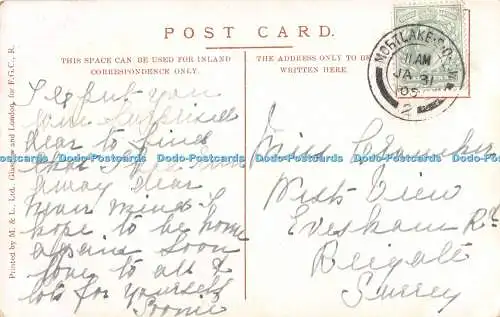 POST CARD.
THIS SPACE CAN BE USED FOR INLAND
CORRESPONDENCE ONLY.
THE ADDRESS ONLY TO BE
WRITTEN HERE.
MORTLAKE. S.O.
11 AM
JA 31
05
2
Printed by M. & L., Ltd. Glasgow and London, for F.G.C., R.
I expect you
surprised
dear to find
that I
away dear
never mind I
hope to be home
again soon
love to all &
lots for yourself
Miss
West View
Evesham Rd
Reigate
Surrey
Dodo-Postcards Dodo-Postcards Dodo-Postcards Dodo-Postcards